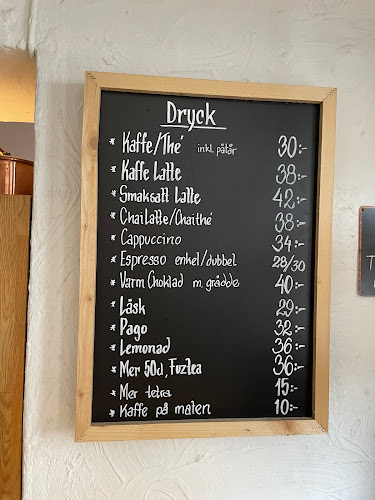 Dryck
* Kaffe/Thé inkl. påtår 30:-
* Kaffe Latte 38:-
* Smaksatt Latte 42:-
* Chailatte/Chaithé 38:-
* Cappuccino 34:-
* Espresso enkel/dubbel 28/30
* Varm Choklad m. grädde 40:-
* Läsk 29:-
* Pago 32:-
* Lemonad 36:-
* Mer 50cl, Fuztea 36:-
* Mer tetra 15:-
* Kaffe på maten 10:-